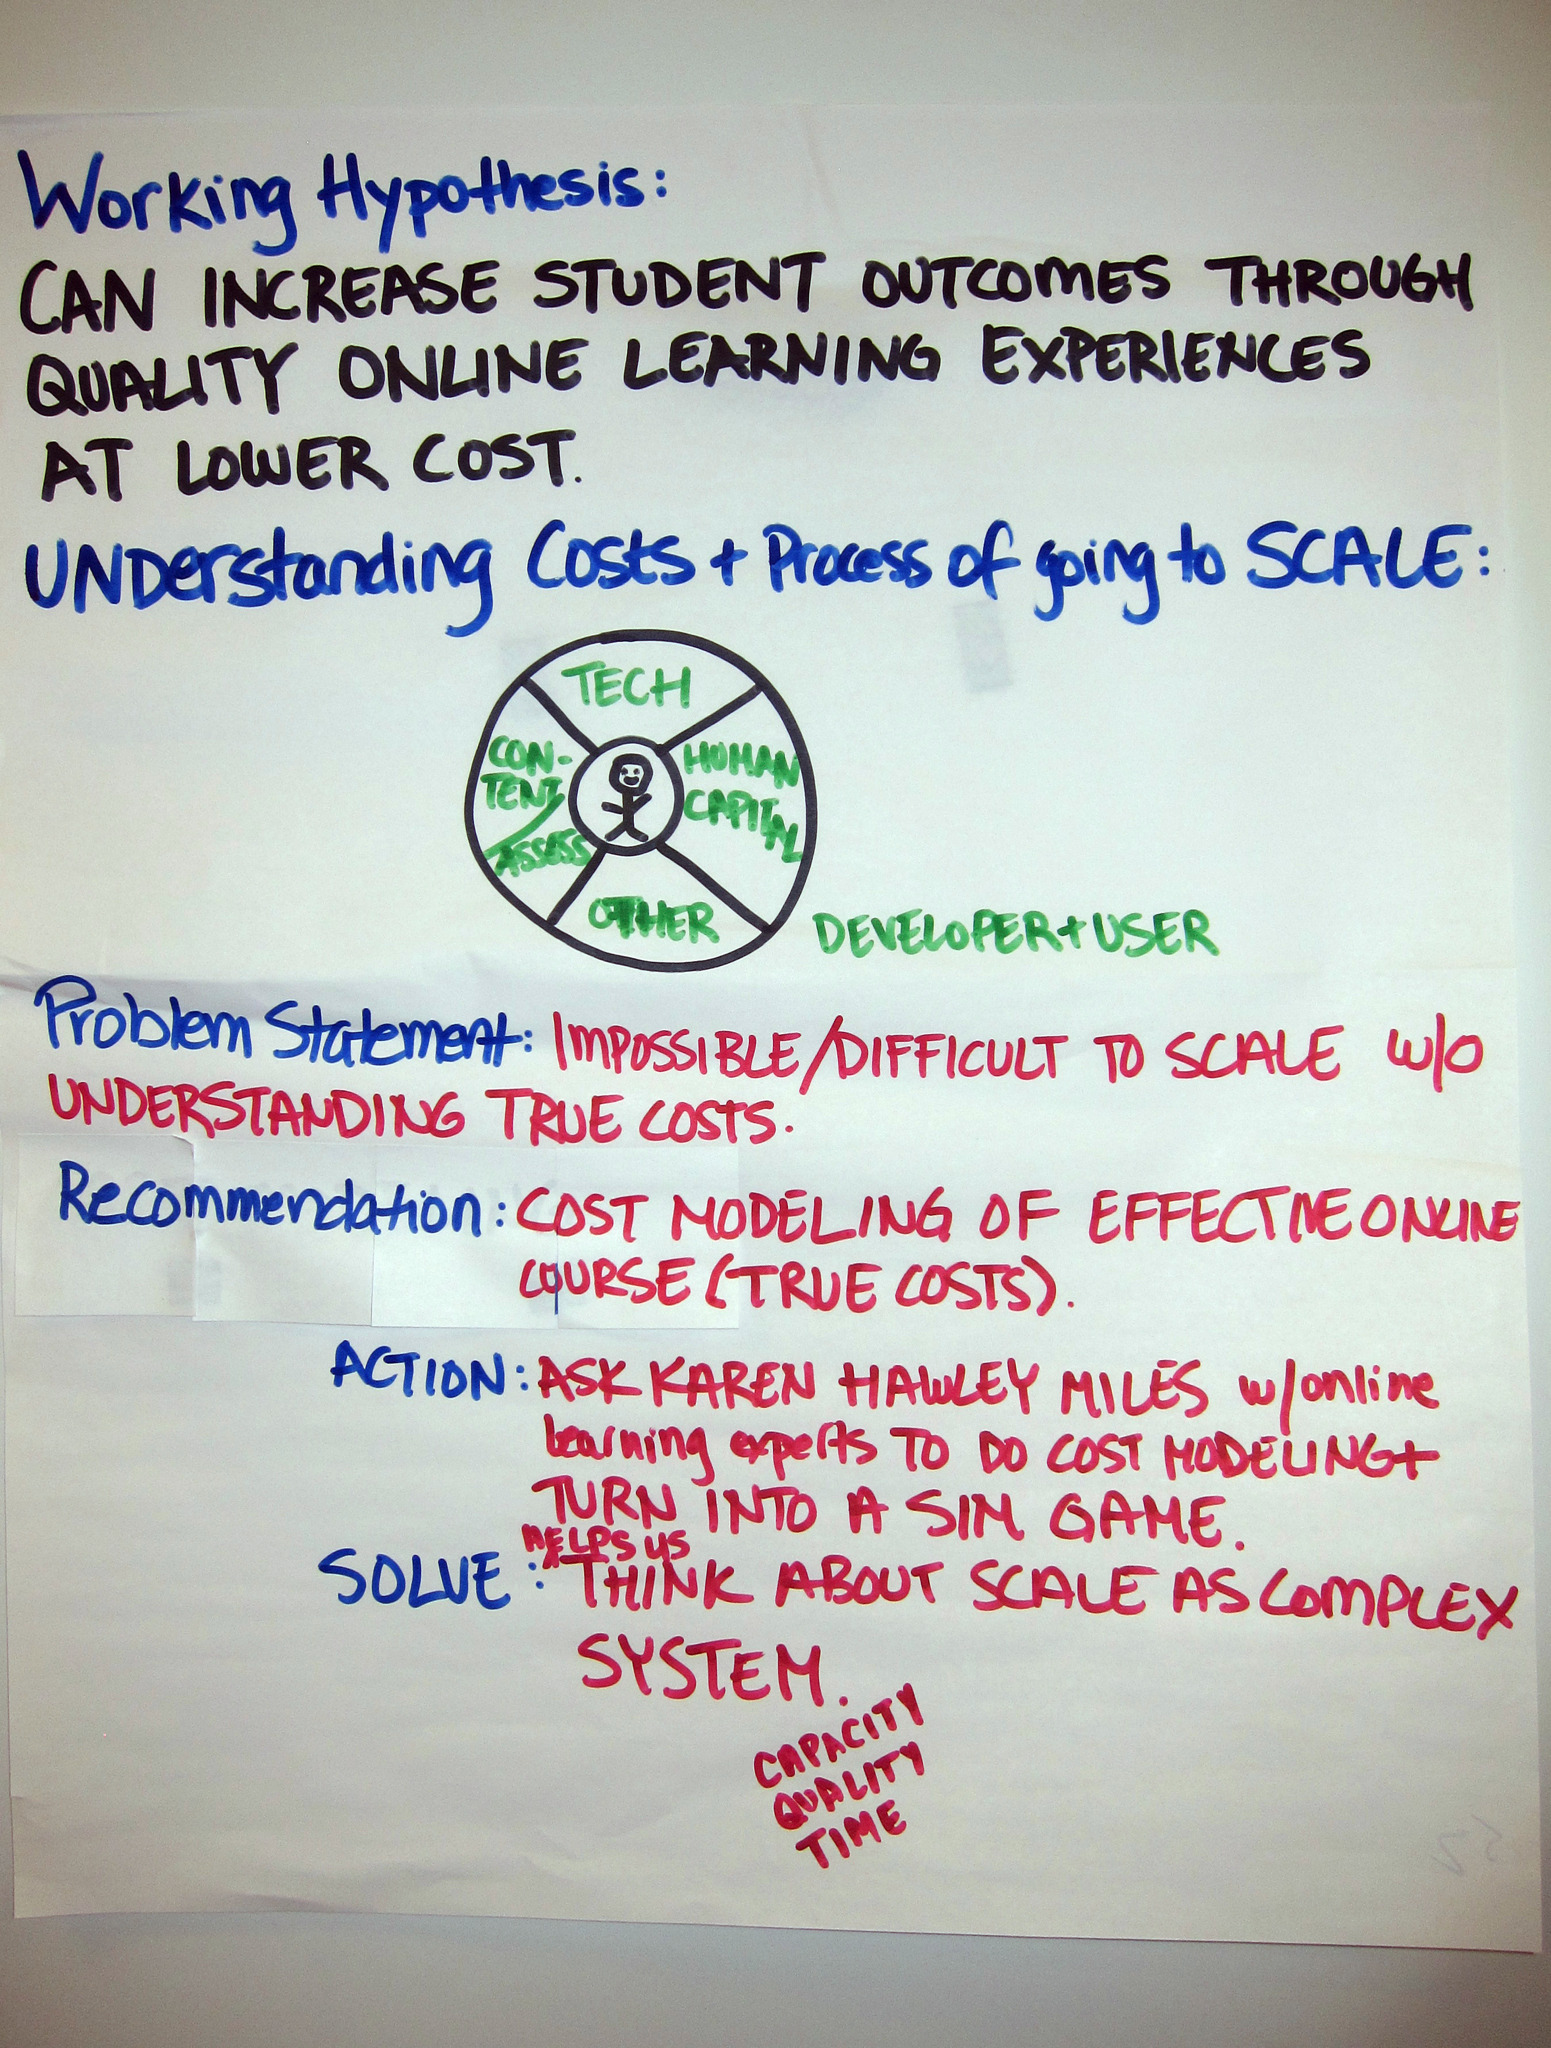 Working Hypothesis:
CAN INCREASE STUDENT OUTCOMES THROUGH
QUALITY ONLINE LEARNING EXPERIENCES
AT LOWER COST.
UNDerstanding Costs + Process of going to SCALE:
TECH
CON-
TENT/
ASSESS
HUMAN
CAPITAL
OTHER
DEVELOPER + USER
Problem Statement: IMPOSSIBLE/DIFFICULT TO SCALE W/O
UNDERSTANDING TRUE COSTS.
Recommendation: COST MODELING OF EFFECTIVE ONLINE
COURSE (TRUE COSTS).
ACTION: ASK KAREN HAWLEY MILES w/online
learning experts TO DO COST MODELING +
TURN INTO A SIM GAME.
HELPS US
SOLVE: THINK ABOUT SCALE AS COMPLEX
SYSTEM.
CAPACITY
QUALITY
TIME